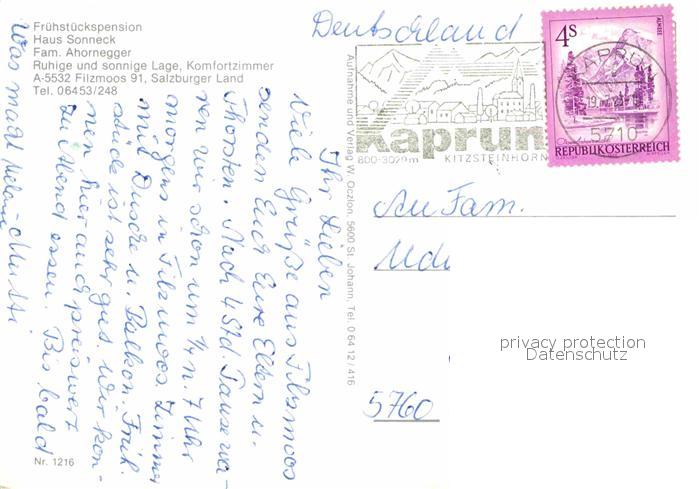 Frühstückspension
Haus Sonneck
Fam. Ahornegger
Ruhige und sonnige Lage, Komfortzimmer
A-5532 Filzmoos 91, Salzburger Land
Tel. 06453/248
Deutschland
4S
ALMSEE
REPUBLIK ÖSTERREICH
KAPRUN
5710
Kaprun
800-3029m KITZSTEINHORN
Aufnahme und Verlag W. Oczlon, 5600 St. Johann, Tel. 0 64 12 / 416
Ihr Lieben
Viele Grüße aus Filzmoos
senden Euch Eure Eltern u.
Thorsten. Nach 4 Std. Pause wa-
ren wir schon um 1/4 n. 7 Uhr
morgens in Filzmoos. Zimmer
mit Dusche u. Balkon. Früh.
stück ist sehr gut. Wir kön-
nen hier auch preiswert
zu Abend essen. Bis bald
Was macht Mutti
An Fam.
5760
Nr. 1216
privacy protection
Datenschutz